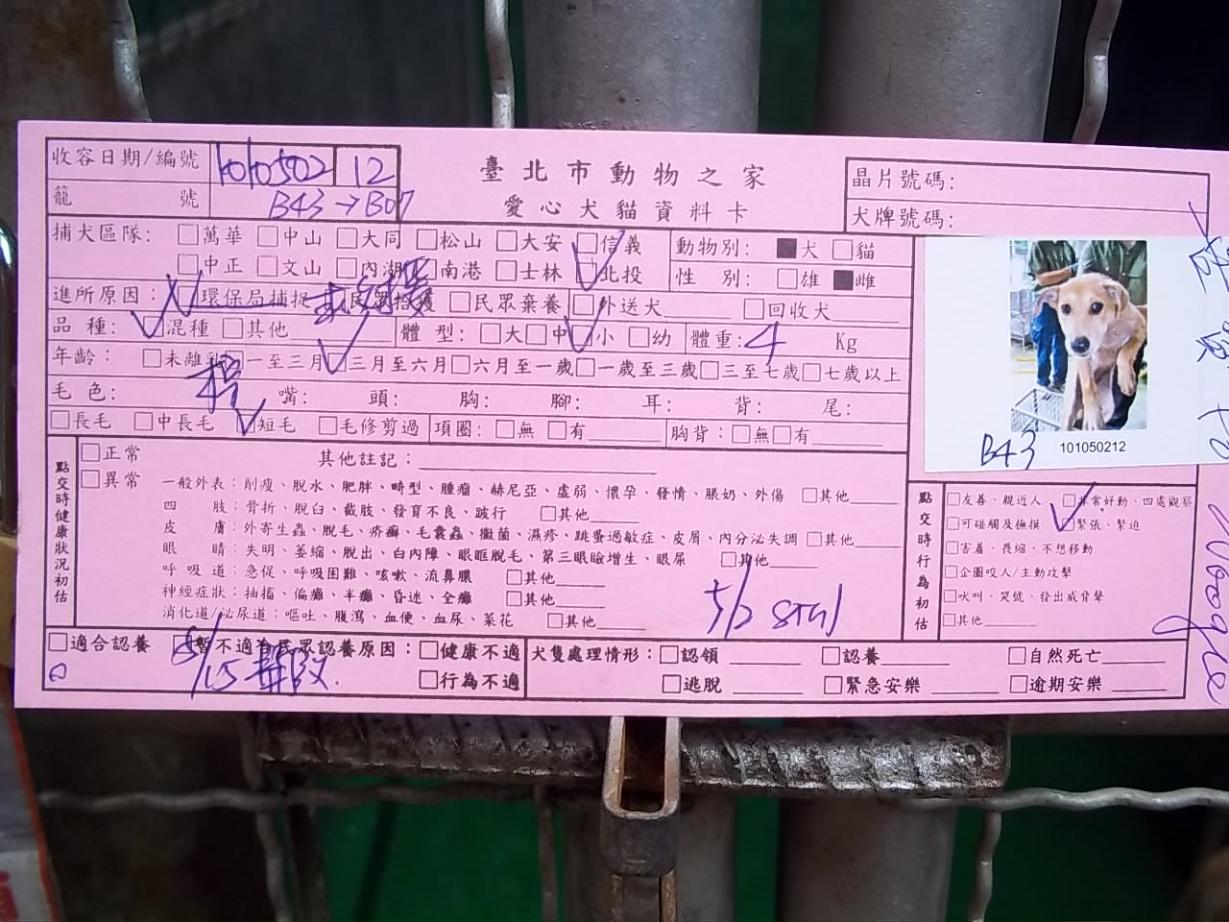 收容日期/編號 1010502 12
籠 號 B43→B07
臺北市動物之家
愛心犬貓資料卡
晶片號碼:
犬牌號碼:
捕犬區隊: □萬華 □中山 □大同 □松山 □大安 □信義
□中正 □文山 □內湖 □南港 □士林 □北投
動物別: ■犬 □貓
性 別: □雄 ■雌
進所原因: □環保局捕捉 □民眾拾獲 □民眾棄養 □外送犬 □回收犬
品 種: □混種 □其他 體 型: □大□中□小 □幼 體重: 4 Kg
年齡: □未離乳□一至三月□三月至六月□六月至一歲□一歲至三歲□三至七歲□七歲以上
毛 色: 嘴: 頭: 胸: 腳: 耳: 背: 尾:
□長毛 □中長毛 □短毛 □毛修剪過 項圈: □無 □有 胸背: □無□有
B43 101050212
點交時健康狀況初估
□正常 其他註記:
□異常 一般外表: 削瘦、脫水、肥胖、畸型、腫瘤、赫尼亞、虛弱、懷孕、發情、脹奶、外傷 □其他
四 肢: 骨折、脫臼、截肢、發育不良、跛行 □其他
皮 膚: 外寄生蟲、脫毛、疥癬、毛囊蟲、黴菌、濕疹、跳蚤過敏症、皮屑、內分泌失調 □其他
眼 睛: 失明、萎縮、脫出、白內障、眼眶脫毛、第三眼瞼增生、眼屎 □其他
呼吸道: 急促、呼吸困難、咳嗽、流鼻膿 □其他
神經症狀: 抽搐、偏癱、半癱、昏迷、全癱 □其他
消化道/泌尿道: 嘔吐、腹瀉、血便、血尿、菜花 □其他
點交時行為初估
□友善、親近人 □非常好動、四處觀察
□可碰觸及撫摸 □緊張、緊迫
□害羞、畏縮、不想移動
□企圖咬人/主動攻擊
□吠叫、哭號、發出威脅聲
□其他
□適合認養 □暫不適合民眾認養原因: □健康不適
□行為不適
5/15
犬隻處理情形: □認領 □認養 □自然死亡
□逃脫 □緊急安樂 □逾期安樂